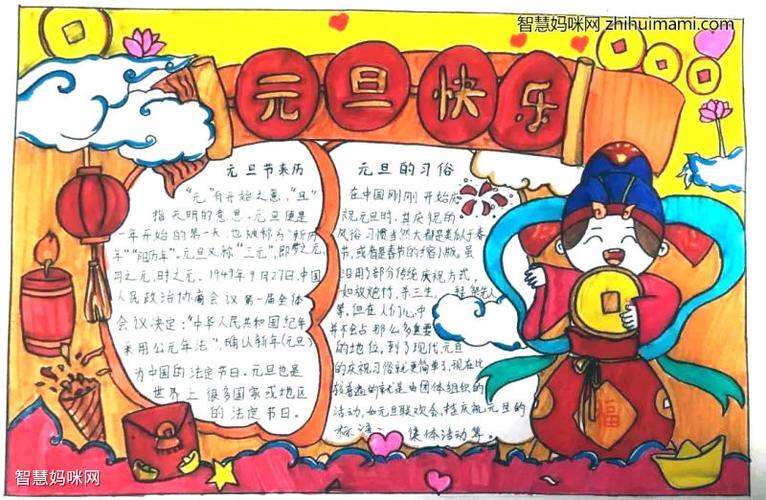 智慧妈咪网 zhihuimami.com
元旦快乐
元旦节来历
"元"有开始之意,"旦"
指天明的意思。元旦便是
一年开始的第一天,也被称为"新历
年""阳历年"。元旦又称"三元",即岁之元、
月之元,时之元。1949年9月27日,中国
人民政治协商会议第一届全体
会议决定:"中华人民共和国纪年
采用公元年法",确认新年(元旦)
为中国的法定节日。元旦也是
世界上很多国家或地区
的法定节日。
元旦的习俗
在中国刚刚开始庆
祝元旦时,其庆祝的
风俗习惯当然大都是类似于春
节,或者是春节的缩小版。虽
沿用了部分传统庆祝方式,
如放炮竹,杀三生,
等,但在人们心中
并不会占那么多重要
的地位。到了现代,元旦
的庆祝习俗就更简单了,现在比
较普遍的就是由团体组织的
活动,如元旦联欢会,挂庆祝元旦的
标语、集体活动等。
福
智慧妈咪网